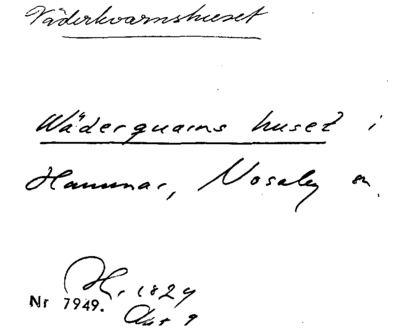 Väderkvarnshuset
Wäderquarns huset i
Hammar, Nosaby sn.
Hf. 1824
Nr 7949.
Aws 9